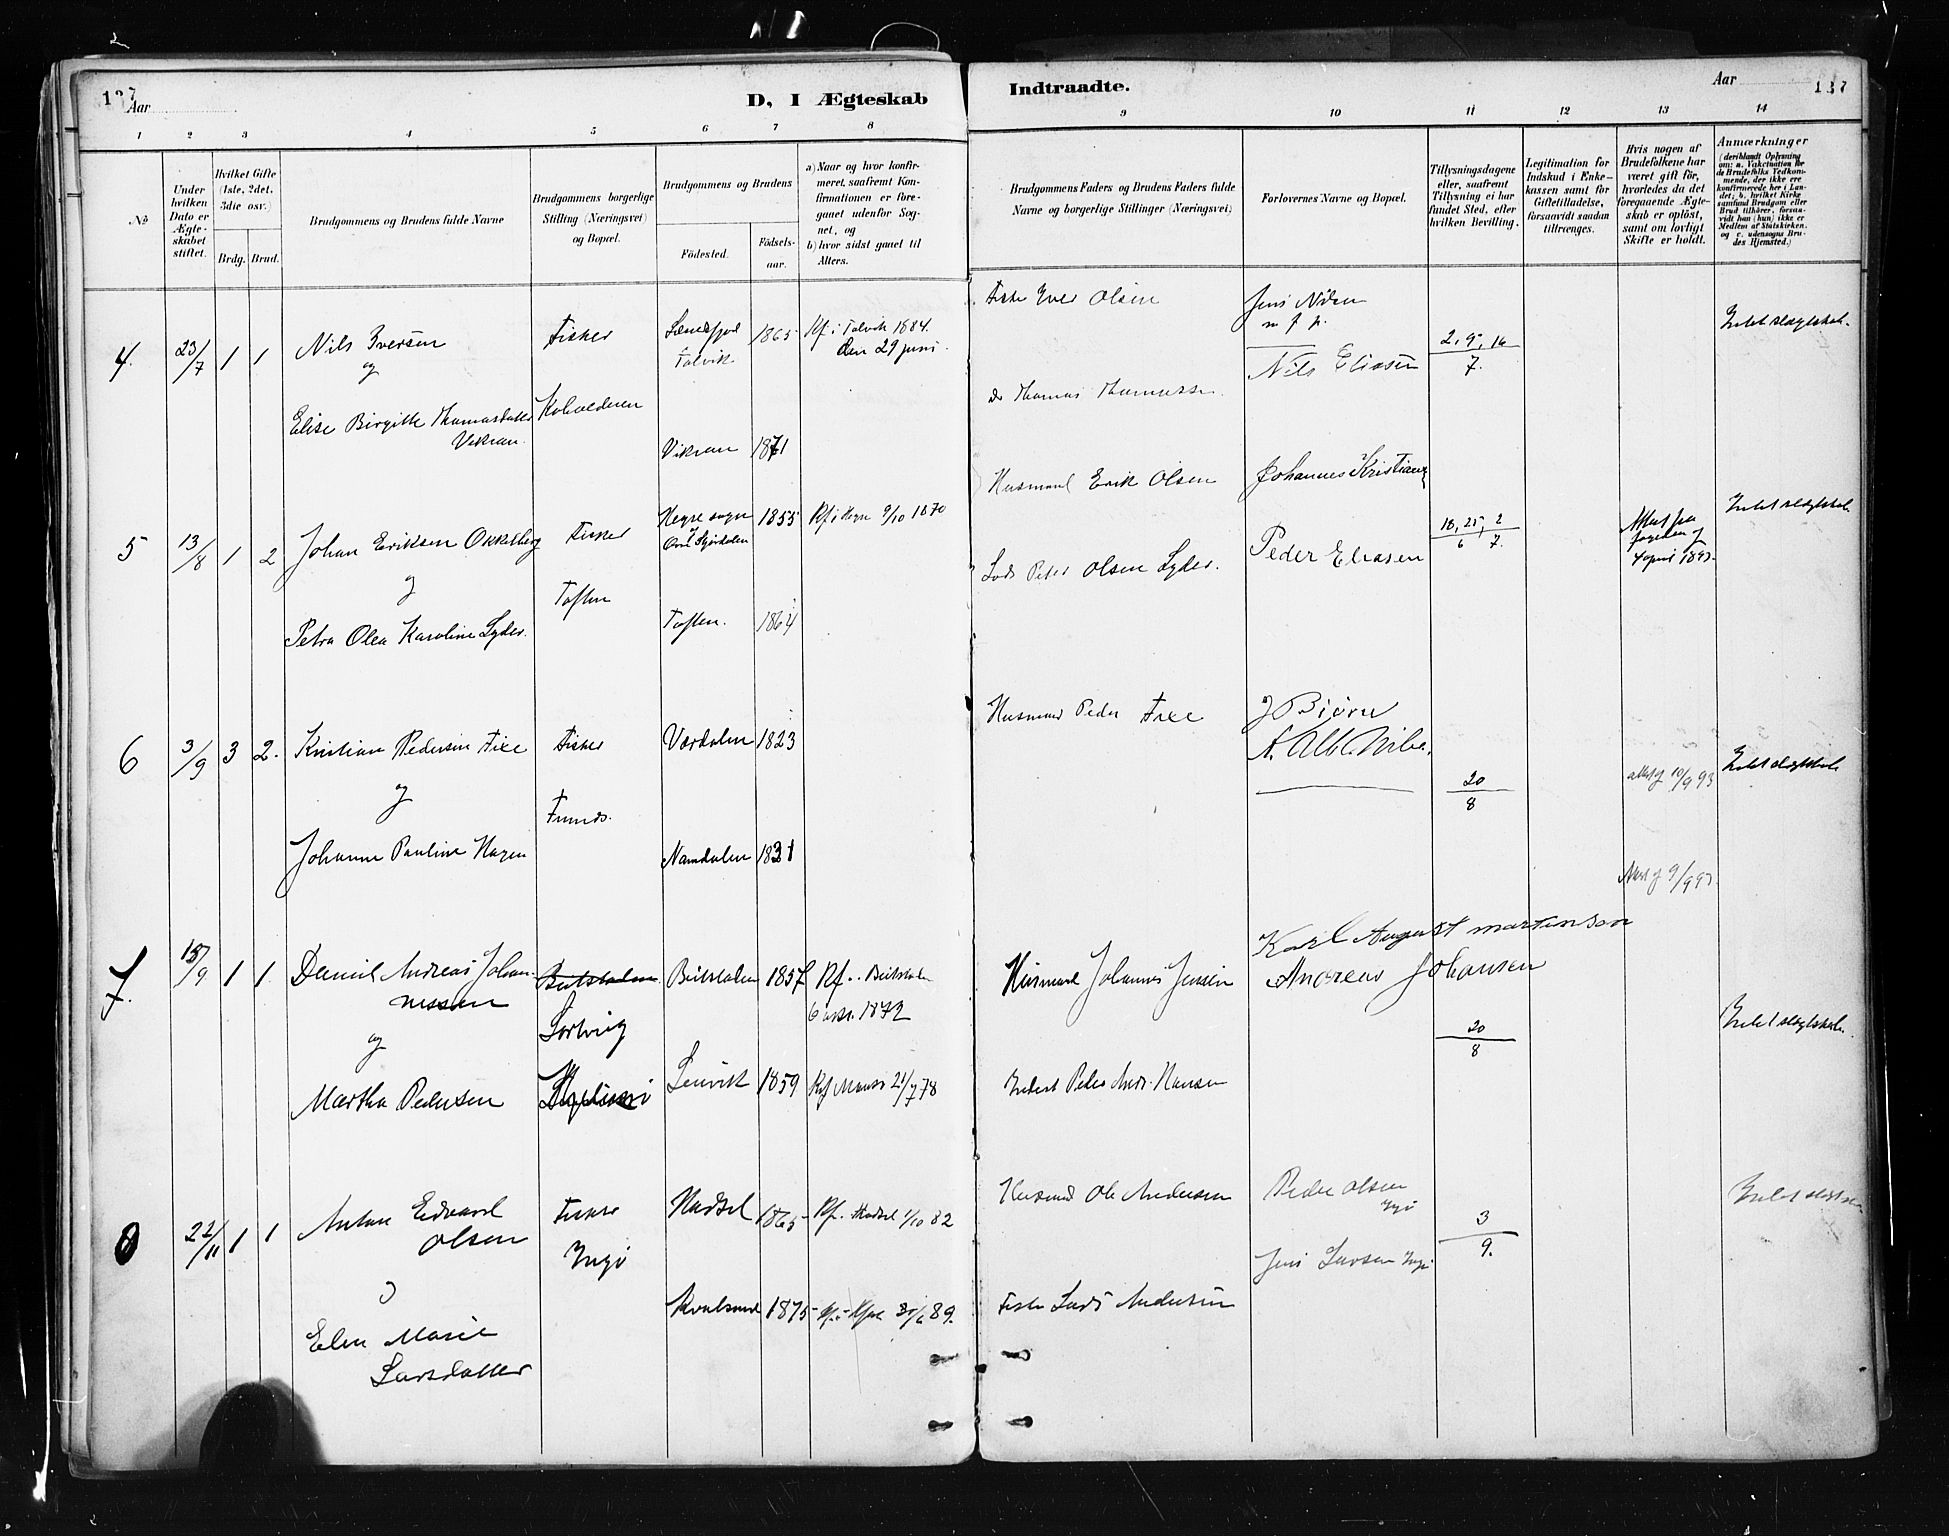 127
Aar
D, I Ægteskab
Indtraadte.
Aar
127
1 2 3 4 5 6 7 8 9 10 11 12 13 14
No
Under hvilken Dato er Ægteskabet stiftet.
Hvilket Gifte (1ste, 2det, 3die osv.)
Brdg. Brud.
Brudgommens og Brudens fulde Navne
Brudgommens borgerlige Stilling (Næringsvei) og Bopæl.
Brudgommens og Brudens
Fødested.
Fødselsaar.
a) Naar og hvor konfirmeret, saafremt Konfirmationen er foregaaet udenfor Sognet, og
b) hvor sidst gaaet til Alters.
Brudgommens Faders og Brudens Faders fulde Navne og borgerlige Stillinger (Næringsvei)
Forlovernes Navne og Bopæl.
Tillysningsdagene eller, saafremt Tillysning ei har fundet Sted, efter hvilken Bevilling.
Legitimation for Indskud i Enkekassen samt for Giftetilladelse, forsaavidt saadan tiltrænges.
Hvis nogen af Brudefolkene har været gift før, hvorledes da det foregaaende Ægteskab er opløst, samt om lovligt Skifte er holdt.
Anmærkninger
(deriblandt Oplysning om: a. Vakcination for de Brudefolks Vedkommende, der ikke ere konfirmerede her i Landet; b. hvilket Kirkesamfund Brudgom eller Brud tilhører, forsaavidt han (hun) ikke er Medlem af Statskirken, og c. udensogns Brudes Hjemsted.)
4. 23/7 1 1 Nils Iversen Fisker
Talvik 1865 Kf. i Talvik 1884.
den 29 juni.
og
Elise Birgitte Thomasdatter
Vikran
Vikran 1871
Fisker Iver Olsen
Do Thomas Thomassen
Jens Nilsen
Nils Eliasen
2, 9, 16
7.
Intet slægtskab.
5 13/8 1 2 Johan Eriksen Okkelberg Fisker
Hegre sogn 1855 Kf i Hegre 9/10 1870
Stjørdalen
og
Toften
Petra Olea Karoline Lyder. Toften. 1864
Husmand Erik Olsen
Peter Olsen Lyder.
Johannes Kristian
Peder Eliasen
18, 25, 2
6 7.
Attest fra
fogden af
4 april 1893.
Intet slægtskab
6 3/9 3 2. Kristian Pedersen Fixe Fisker Værdalen 1823
og
Johanne Pauline Hagen Namdalen 1831
Husmand Peder Fixe
J Bjørn
20
8
Attest af 10/9 93
Attest af 9/9 93.
Intet slægtskab
7. 1 1 Daniel Andreas Johannessen
Beitstaden 1857 Kf. i Beitstaden
1872
og
Sortvig
Martha Pedersen Lenvik 1859 Kf Maasø 21/7 78
Husmand Johannes Jensen
Inderst Peder Andr. Hansen
Karl August Martinsen
Andreas Johansen
20
8
Intet slægtskab.
8 22/11 1 1 Anton Edvard
Olsen
Fisker
Ingø
Hadsel 1865 Kf. Hadsel 1/10 82
Elen Marie
Larsdatter
Kvalsund 1875 89.
Husmand Ole Andersen
Fisker Lars Andersen
Peder Olsen
Ingø
Jens Larsen Ingø
3
9.
Intet slægtskab